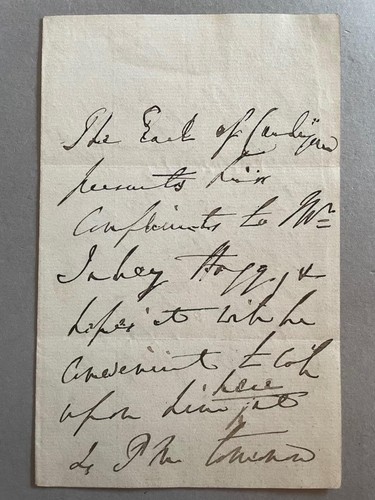 The Earl of Cardigan
presents his
Compliments to Mr
Hogg, &
hopes it will be
convenient to call
upon him here at
P M